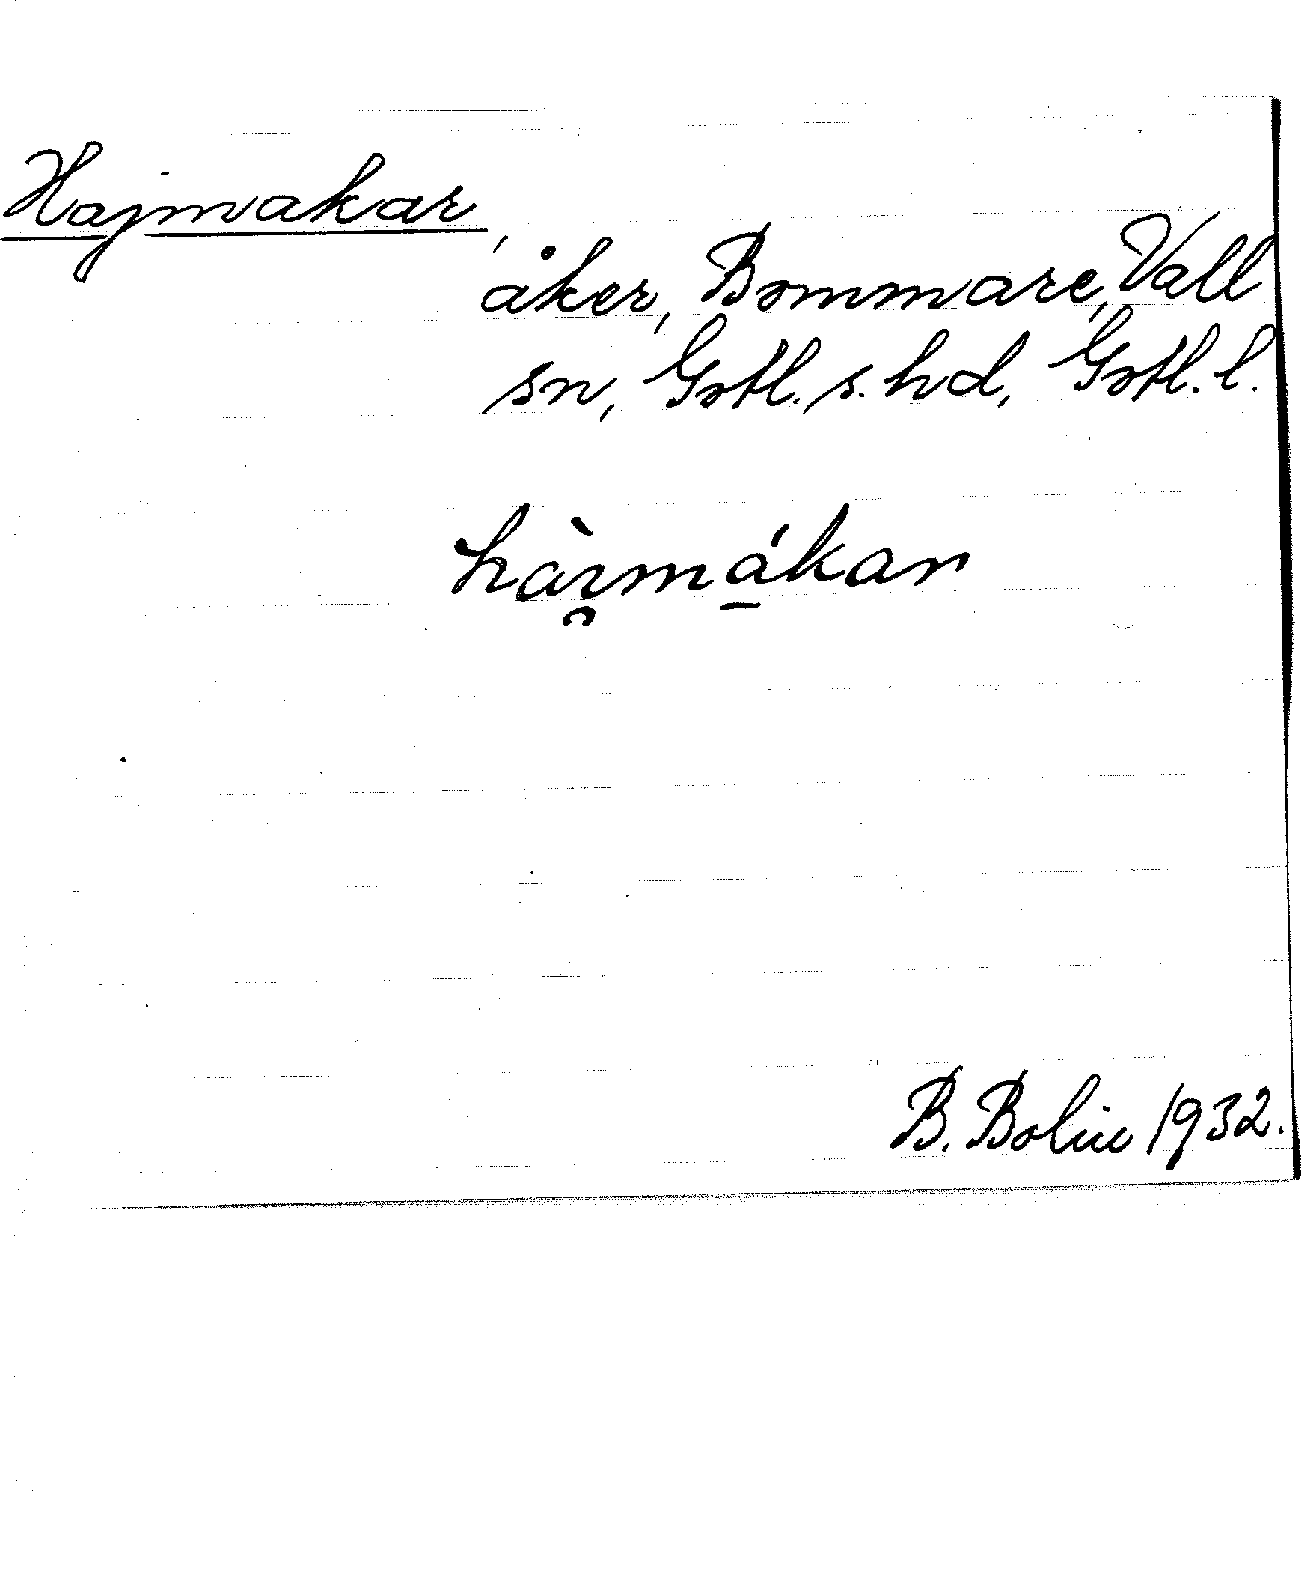 Hajmakar,
åker, Bommare, Vall
sn, Gotl. s. hd, Gotl. l.
hàı̯má̱kar
B. Bolin 1932.